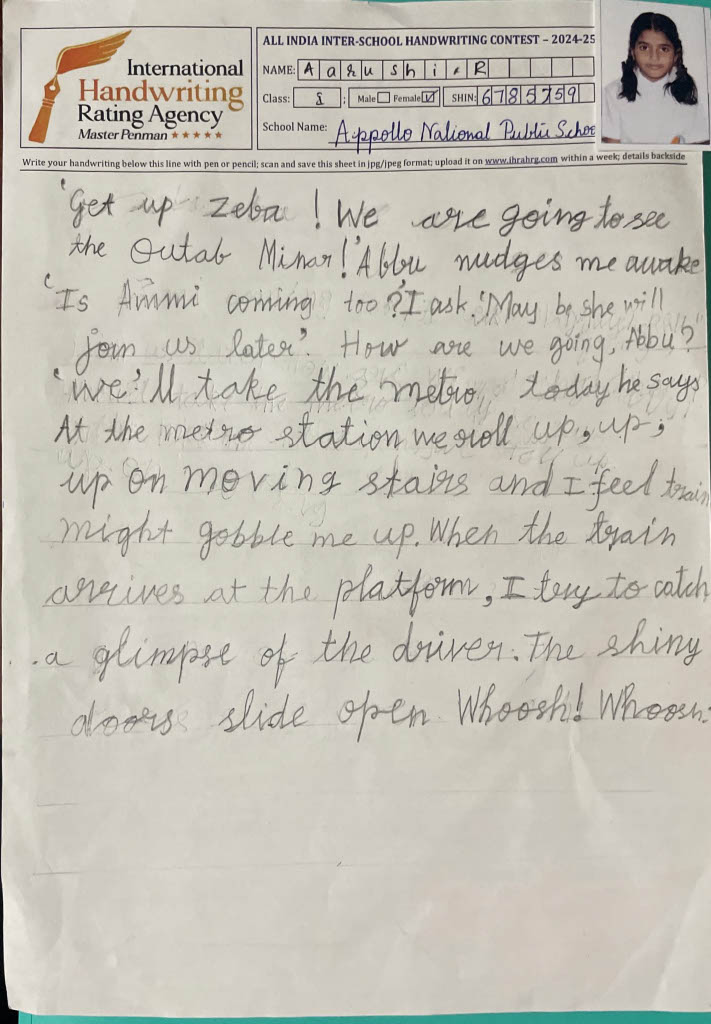 International
Handwriting
Rating Agency
Master Penman ★★★★★
ALL INDIA INTER-SCHOOL HANDWRITING CONTEST – 2024-25
NAME: Aarushi . R
Class: ; Male Female ☑ SHIN: 6785759
School Name: Appollo National Public Schoo
Write your handwriting below this line with pen or pencil; scan and save this sheet in jpg/jpeg format; upload it on www.ihrahrg.com within a week; details backside
'Get up zeba ! We are going to see
the Outab Minar!' Abbu nudges me awake
'Is Ammi coming too?' I ask. 'May be she will
join us later'. How are we going, Abbu?
'we'll take the metro, today he says
At the metro station we roll up, up,
up on moving stairs and I feel train
might gobble me up. When the train
arrives at the platform, I try to catch
a glimpse of the driver. The shiny
doors slide open Whoosh! Whoosh.